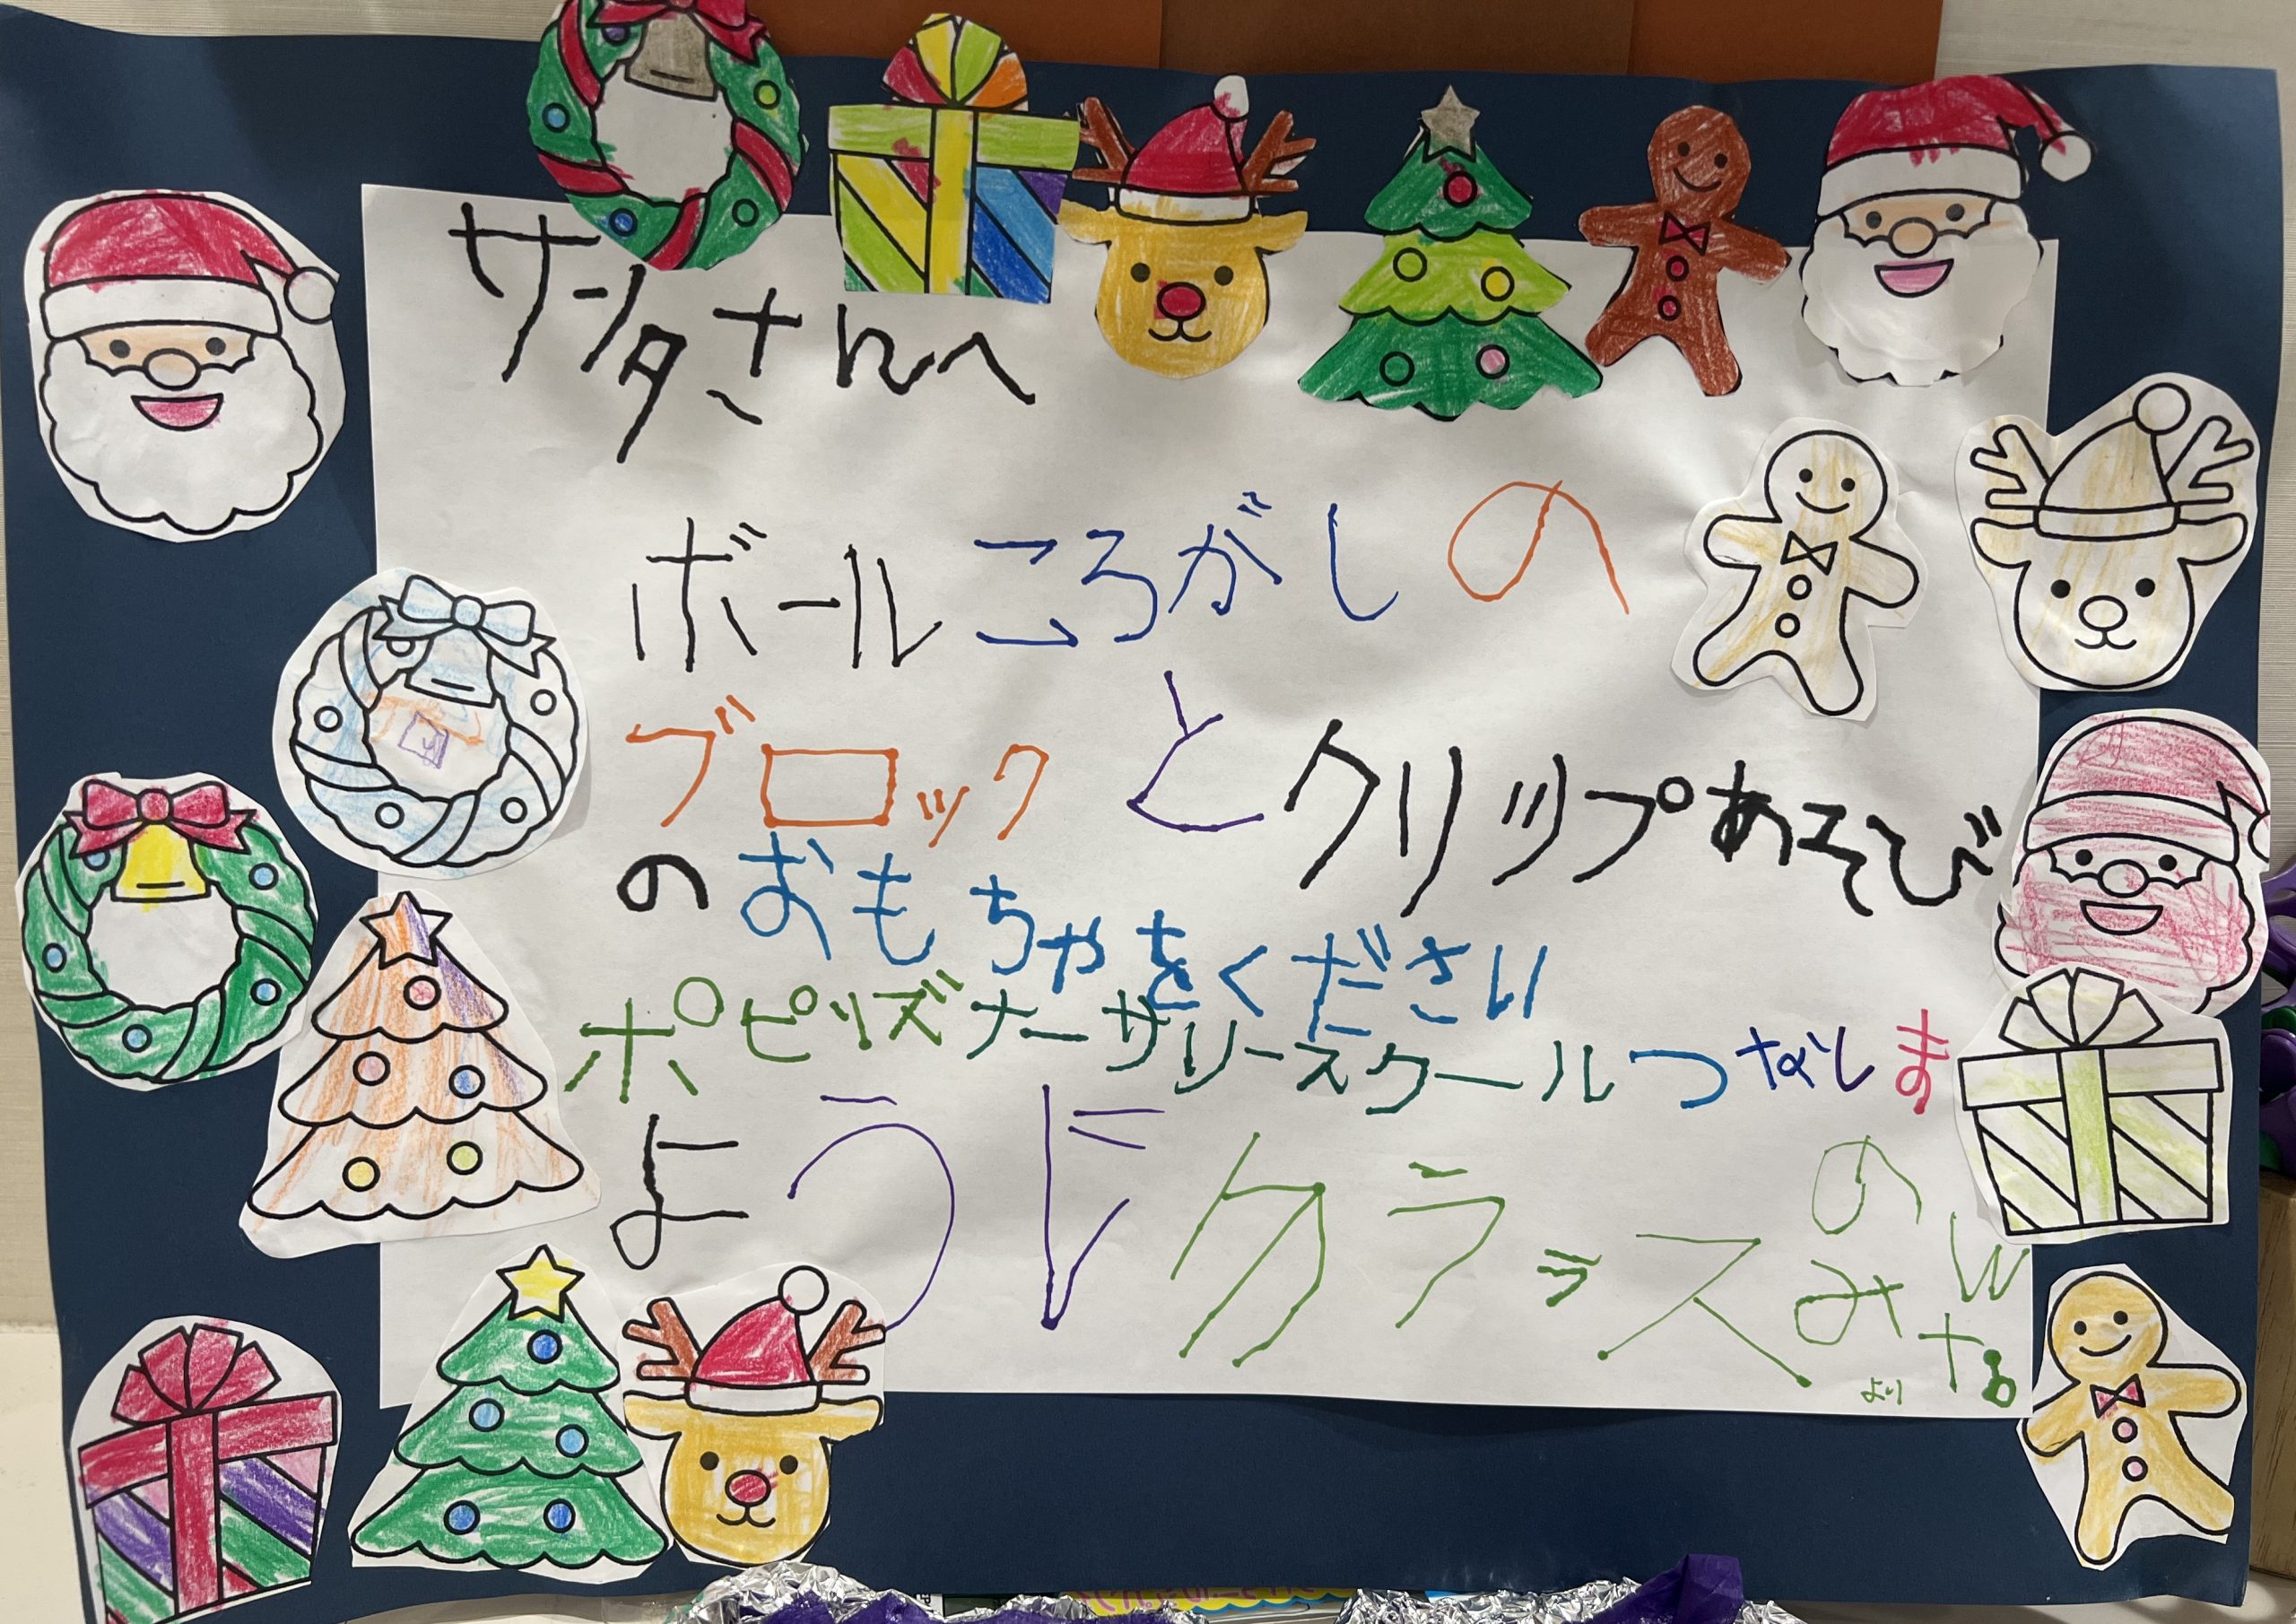 サンタさんへ
ボールころがしの
ブロックとクリップあそび
のおもちゃをください
ポピンズナーサリースクールつなしま
ようじクラスのみんな
より